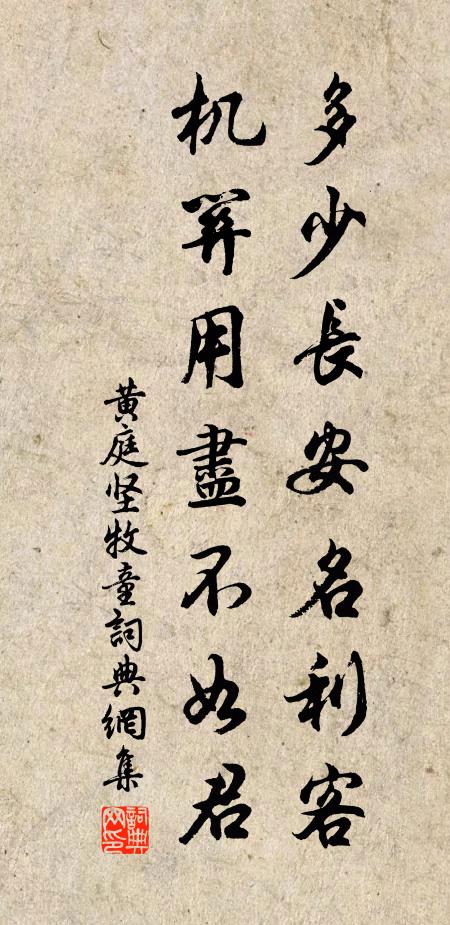 多少長安名利客
机筭用盡不如君
黄庭坚牧童詞典網集
詞典網印